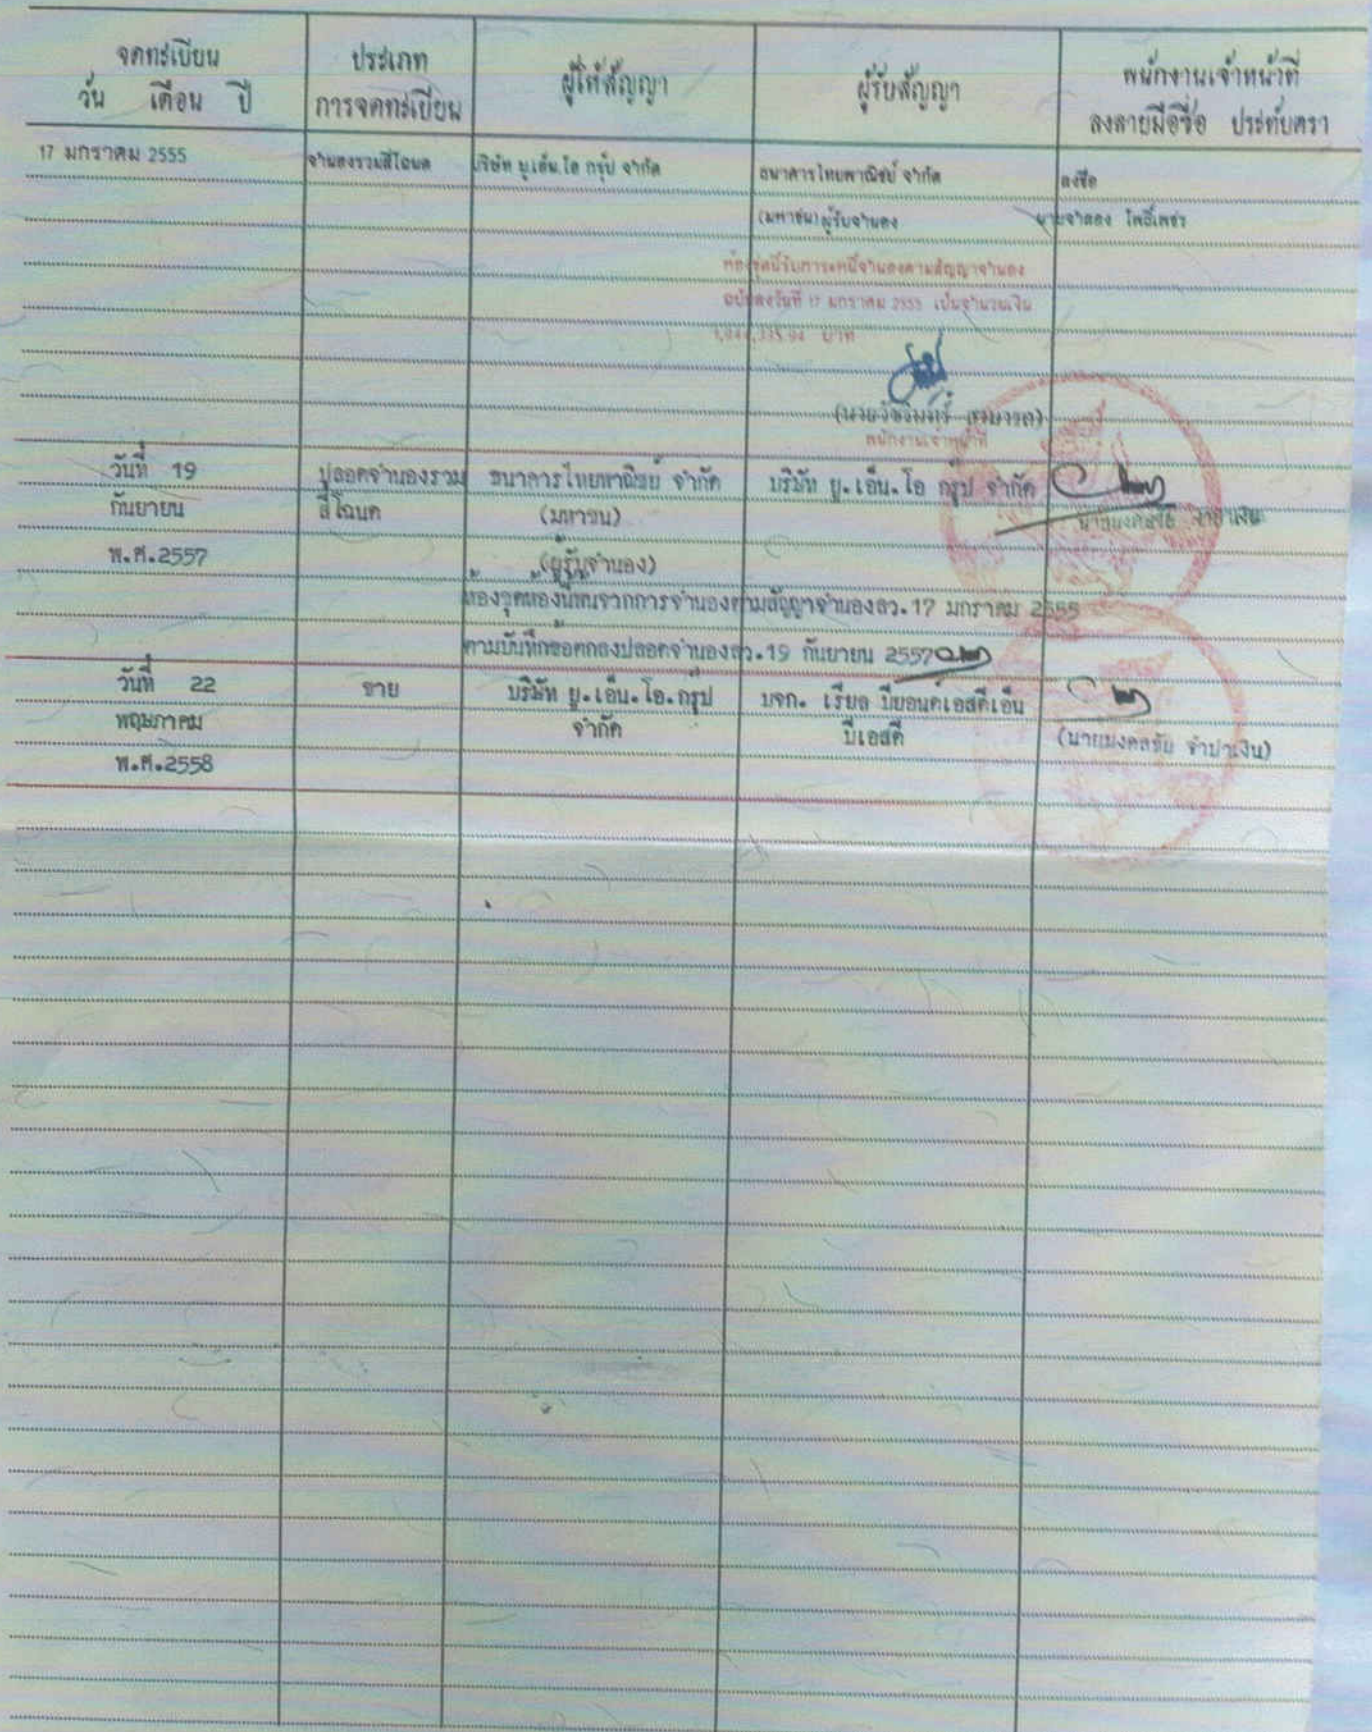 จดทะเบียน
วัน เดือน ปี
ประเภท
การจดทะเบียน
ผู้ให้สัญญา
ผู้รับสัญญา
พนักงานเจ้าหน้าที่
ลงลายมือชื่อ ประทับตรา
17 มกราคม 2555
จำนองรวมสี่โฉนด
บริษัท ยู.เอ็น.โอ กรุ๊ป จำกัด
ธนาคารไทยพาณิชย์ จำกัด
ลงชื่อ
(มหาชน) ผู้รับจำนอง
นายจำลอง โพธิ์เพชร
ห้องชุดนี้รับภาระหนี้จำนองตามสัญญาจำนอง
ฉบับลงวันที่ 17 มกราคม 2555 เป็นจำนวนเงิน
บาท
พนักงานเจ้าหน้าที่
วันที่ 19
กันยายน
พ.ศ.2557
ปลอดจำนองรวม
สี่โฉนด
ธนาคารไทยพาณิชย์ จำกัด
(มหาชน)
(ผู้รับจำนอง)
บริษัท ยู.เอ็น.โอ กรุป จำกัด
ห้องชุดห้องนี้พ้นจากการจำนองตามสัญญาจำนองลว.17 มกราคม 2555
ตามบันทึกข้อตกลงปลอดจำนองลว.19 กันยายน 2557
วันที่ 22
พฤษภาคม
พ.ศ.2558
ขาย
บริษัท ยู.เอ็น.โอ.กรุป
จำกัด
บจก. เรียล บียอนด์เอสดีเอ็น
บีเอสดี
(นายมงคลชัย จำปาเงิน)